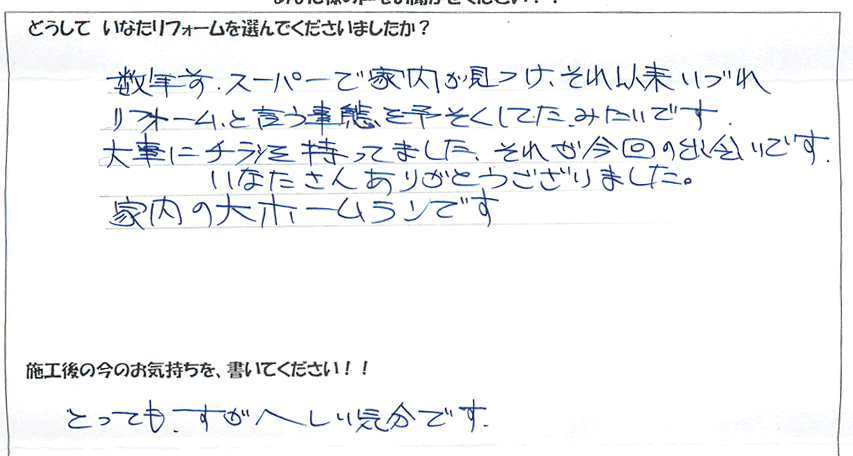 どうして いなたリフォームを選んでくださいましたか？
数年前、スーパーで家内が見つけ、それ以来いづれ
リフォーム、と言う事態を予そくしてた、みたいです。
大事にチラシを持ってました、それが今回の出会いです。
いなたさんありがとうございました。
家内の大ホームランです
施工後の今のお気持ちを、書いてください！！
とっても、すがへしい気分です。